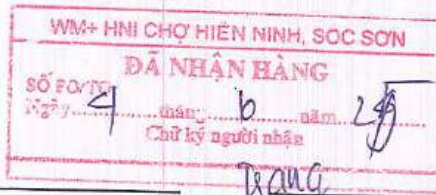 WM+ HNI CHỢ HIỀN NINH, SÓC SƠN
ĐÃ NHẬN HÀNG
SỐ PO/TO
Ngày 4 tháng 6 năm
Chữ ký người nhận
Trang